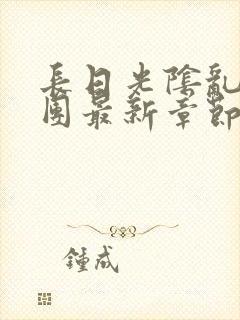 長日光陰亂
團最新章節
鍾成